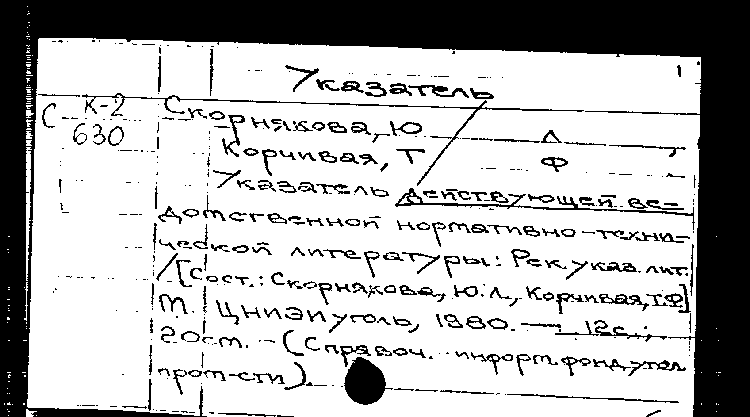 1
Указатель
С К-2
630
Скорнякова, Ю Л ,
Корчивая, Т Ф
Указатель действующей ве=
домственной нормативно-техни=
ческой литературы: Рек. указ. лит.
/[Сост.: Скорнякова, Ю.Л., Корчивая, Т.Ф]
М. ЦНИЭИуголь, 1980. — 12с.;
20см. - (Справоч. информ. фонд угол
пром-сти).